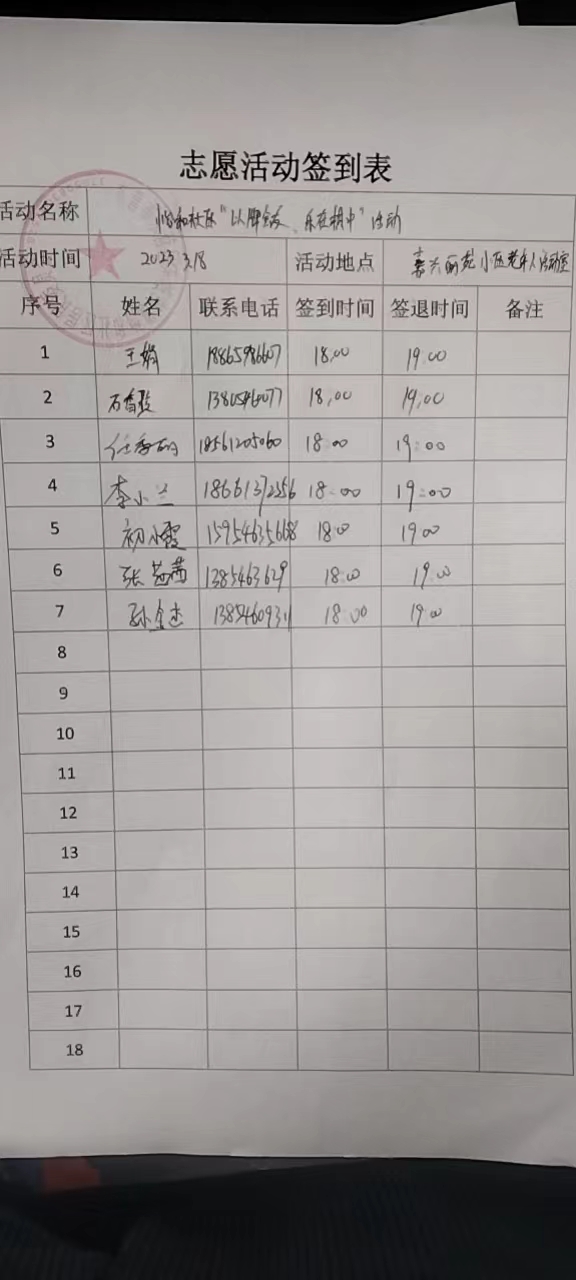 志愿活动签到表
活动名称 怡和社区“以牌会友、乐在棋中”活动
活动时间 2023 3/18 活动地点 嘉兴丽苑小区老年人活动室
序号 姓名 联系电话 签到时间 签退时间 备注
1 王娟 18865986607 18:00 19:00
2 1380546077 18:00 19:00
3 18561205060 18:00 19:00
4 李小兰 18661372256 18:00 19:00
5 初小霞 15954635668 18:00 19:00
6 张茜 1385463629 18:00 19:00
7 孙金杰 18:00 19:00
8
9
10
11
12
13
14
15
16
17
18